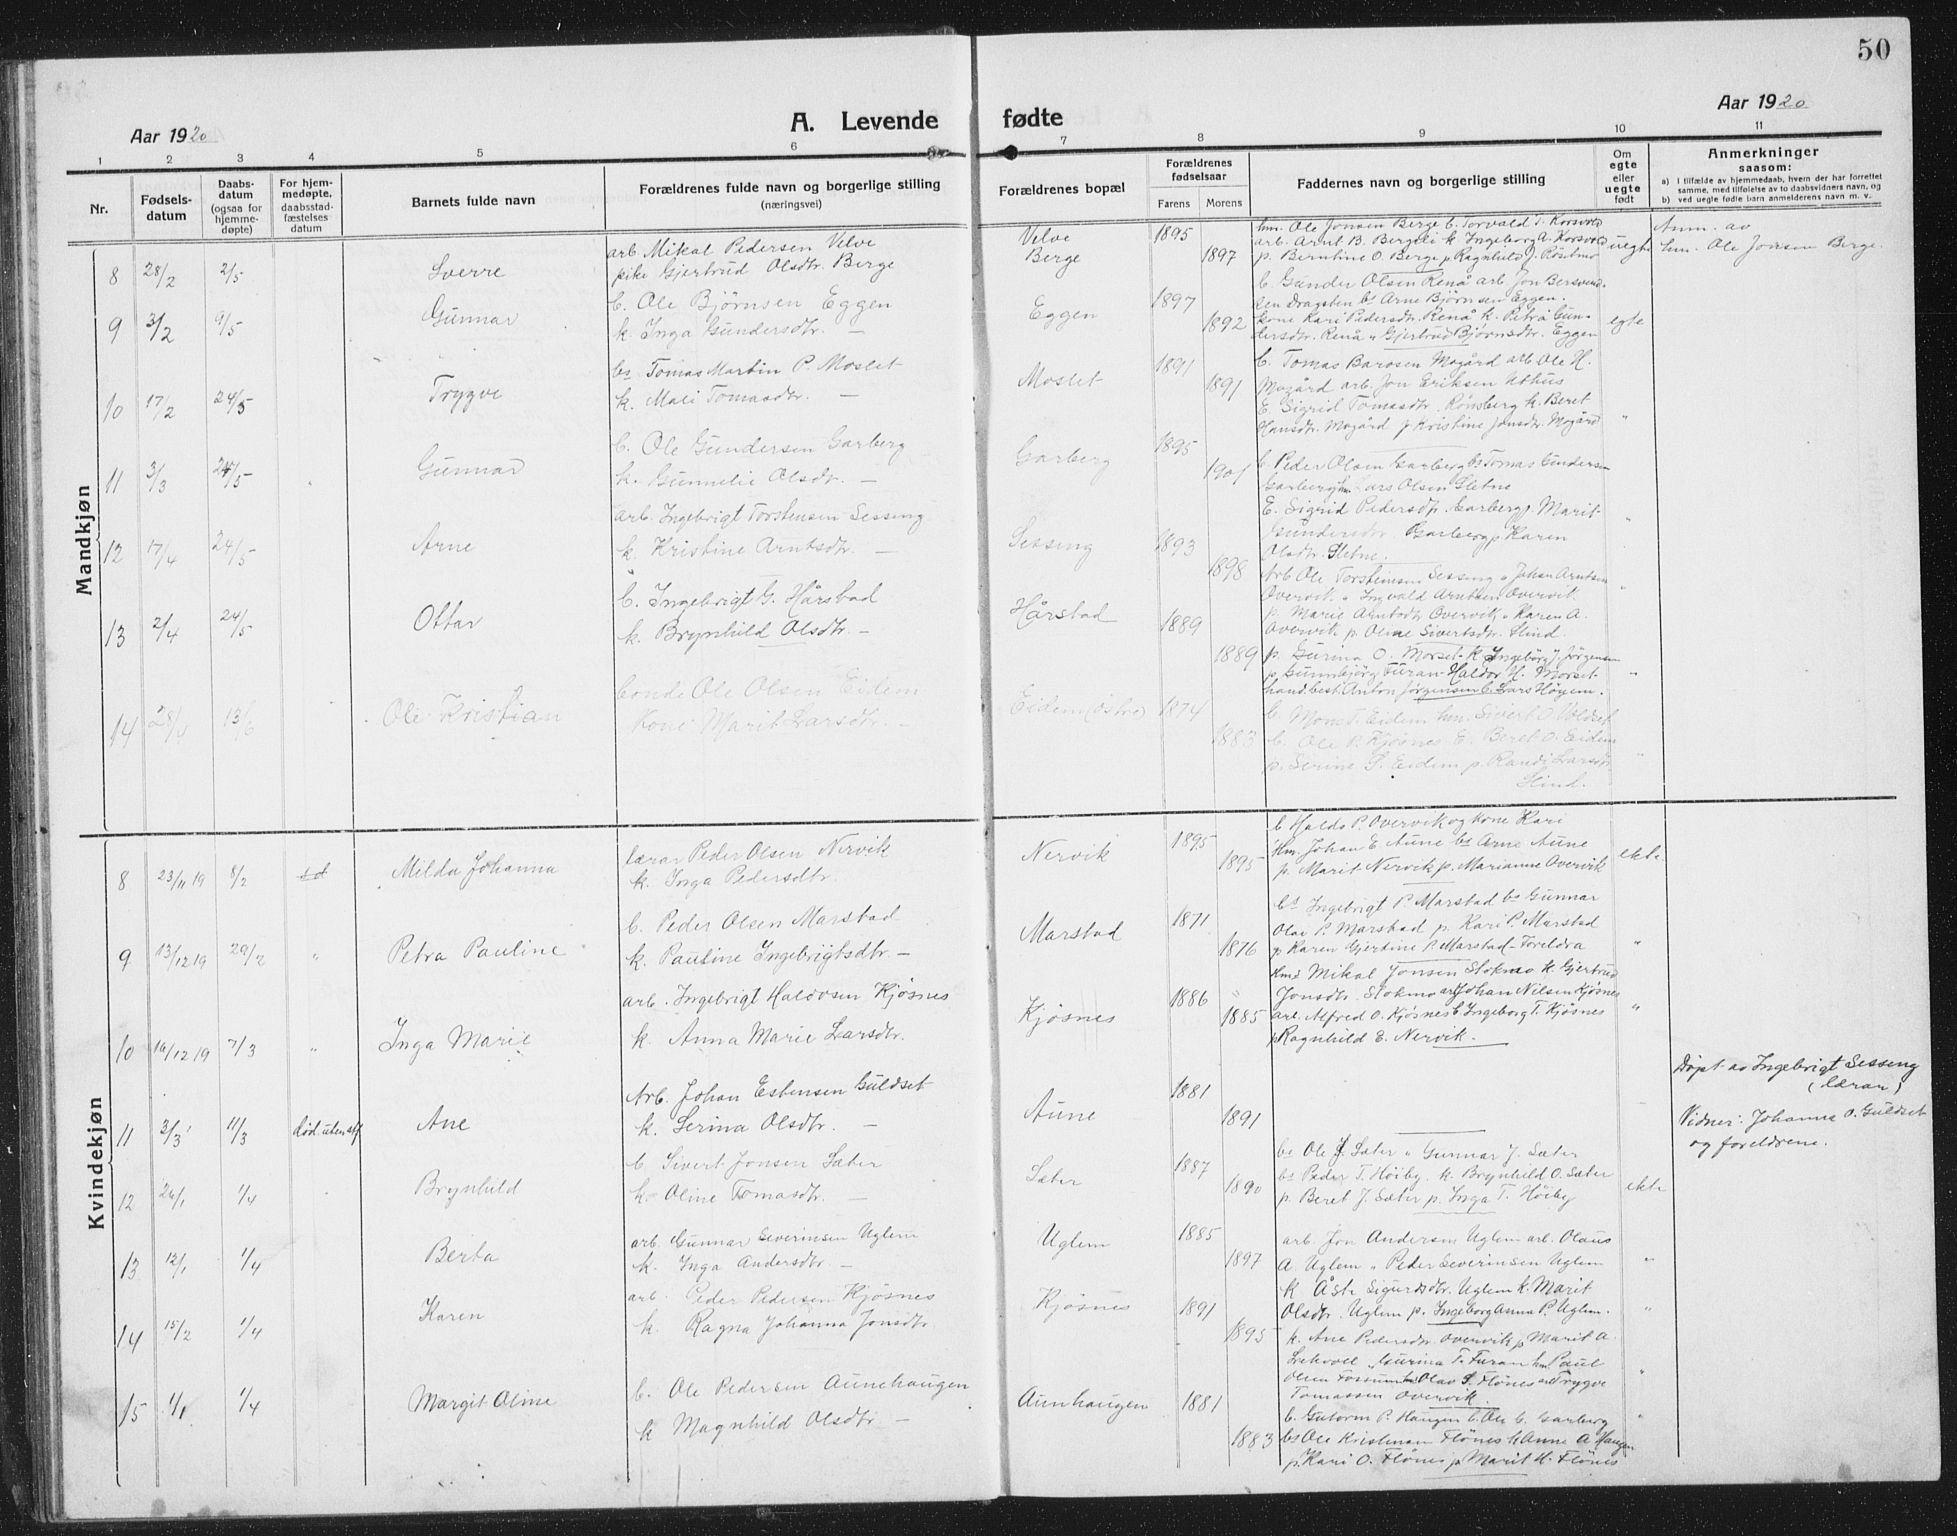 50
Aar 1920
A. Levende fødte
Aar 1920
1 2 3 4 5 6 7 8 9 10 11
Nr.
Fødsels-datum
Daabs-datum (ogsaa for hjemme-døpte)
For hjem-medøpte, daabsstad-fæstelses datum
Barnets fulde navn
Forældrenes fulde navn og borgerlige stilling (næringsvei)
Forældrenes bopæl
Forældrenes fødselsaar
Farens Morens
Faddernes navn og borgerlige stilling
Om egte eller uegte født
Anmerkninger saasom:
a) I tilfælde av hjemmedaab, hvem der har forrettet samme, med tilføielse av to daabsvidners navn, og
b) ved uegte fødte barn anmelderens navn m. v.
Mandkjøn
8 28/2 2/5 Sverre
arb. Mikal Pedersen Velve
pike Gjertrud Olsdtr. Berge
Velve
Berge
1895
1897
hm. Ole Jonsen Berge b. Torvald T. Korsvold
arb. Arnt B. Bergli k. Ingeborg A. Korsvold
p. Berntine O. Berge p. Ragnhild J. Röstmo
uegte
Anm. av
hm. Ole Jonsen Berge.
9 3/2 9/5 Gunnar
b. Ole Björnsen Eggen
k. Inga Gundersdtr. —
Eggen
1897
1892
b. Gunder Olsen Renå arb Jon Bersvend-
sen Dragsten bs Arne Björnsen Eggen.
kone Kari Pedersdtr. Renå k. Petra Gun-
dersdtr. Renå " Gjertrud Björnsdtr. Eggen
egte
10 17/2 24/5 Trygve
bs Tomas Martin P. Moslet
k. Mali Tomasdtr. —
Moslet
1891
1891
b. Tomas Barosen Mogård arb. Ole H.
Mogård arb. Jon Eriksen Uthus
E. Sigrid Tomasdtr. Rönsberg k. Beret
Hansdtr. Mogård p Kristine Jonsdtr. Mogård
"
11 3/3 24/5 Gunnar
b. Ole Gundersen Garberg
k. Gunnelie Olsdtr. —
Garberg
1895
1901
b Peder Olsen Garberg bs Tomas Gundersen
Garberg hm Lars Olsen Sletne
E. Sigrid Pedersdtr. Garberg p. Marit
Gundersdtr Garberg p Karen
Olsdtr. Sletne.
"
12 17/4 24/5 Arne
arb. Ingebrigt Torstensen Sesseng
k. Kristine Arntsdtr. —
Sesseng
1893
1898
Arb Ole Torsteinsen Sesseng " Johan Arntsen
Overvik " Ingvald Arntsen Overvik
p. Marie Arntsdtr Overvik " Karen A.
Overvik p. Oline Sivertsdtr. Slind.
"
13 2/4 24/5 Ottar
b. Ingebrigt G. Hårstad
k. Brynhild Olsdtr. —
Hårstad
1889
1889
p. Gurina O. Morset k Ingeborg J. Jörgensen
p Gunnbjörg Furan Haldor H. Morset
handl.best. Anton Jörgensen b. Lars Höyem.
"
14 28/4 13/6 Ole Kristian
bonde Ole Olsen Eidem
kone Marit Larsdtr. —
Eidem (östre)
1874
1883
b. Mons T. Eidem hm. Sivert O. Voldset
b. Ole P. Kjösnes E. Beret O. Eidem
p. Serine S. Eidem p. Randi Larsdtr
Slind.
"
Kvindekjøn
8 23/11 19 8/2 Milda Johanna
lærar Peder Olsen Nervik
k. Inga Pedersdtr.
Nervik
1895
1895
b Haldo P. Overvik og kone Kari
Hm. Johan E Aune bs Arne Aune
p. Marit Nervik p. Marianne Overvik
ekte
9 13/12 19 29/2 " Petra Pauline
b. Peder Olsen Marstad
k. Pauline Ingebrigtsdtr. —
Marstad
1871
1876
bs Ingebrigt P Marstad bs Gunnar
Olai P. Marstad p. Kari P. Marstad
p Karen Gjertine P. Marstad Foreldra
"
10 16/12 19 7/3 " Inga Marie
arb. Ingebrigt Haldosen Kjøsnes
k. Anna Marie Larsdtr.
Kjøsnes
1886
1885
Hmd Mikal Jonsen Stokmo k. Gjertrud
Jonsdtr. Stokmo arb Johan Nilsen Kjøsnes
arb. Alfred O. Kjøsnes E Ingeborg T. Kjøsnes
p Ragnhild E. Nervik.
"
11 3/3 11/3 Ane
Arb. Johan Estensen Guldset
k. Serina Olsdtr. —
Aune
1881
1891
Døpt av Ingebrigt Sesseng
(lærar)
Vidner: Johanna O. Guldset
og foreldrene.
12 26/1 1/4 Brynhild
b. Sivert Jonsen Sæter
k. Oline Tomasdtr. —
Sæter
1887
1890
bs Ole J. Sæter " Gunnar J. Sæter
bs Peder T. Höiby. k. Brynhild O. Sæter
p. Beret J. Sæter p. Inga T. Höiby
ekte
13 12/1 1/4 Berta
arb. Gunnar Severinsen Uglem
k. Inga Andersdtr —
Uglem
1885
1897
arb. Jon Andersen Uglem arb. Olaus
A Uglem " Peder Severinsen Uglem
k Åste Sigurdsdtr. Uglem k. Marit
Olsdtr. Uglem p. Ingeborg Anna P. Uglem.
"
14 15/2 1/4 Karen
arb. Peder Pedersen Kjøsnes
k. Ragna Johanna Jonsdtr.
Kjøsnes
1891
1895
k. Ane Pedersdtr Overvik p Marit A.
" Gurina T. Furan hm Paul
Olsen Fossum bs Olav S. Flönes arb Trygve
Tomassen Overvik.
"
15 1/1 1/4 Margit Oline
b. Ole Pedersen Aunehaugen
k Magnhild Olsdtr —
Aunhaugen
1881
1883
b. Gutorm P. Haugen b. Ole C. Garberg
bs Ole Kristensen Flönes k Anne A Haugen
p. Kari O. Flönes p. Marit H. Flönes
"